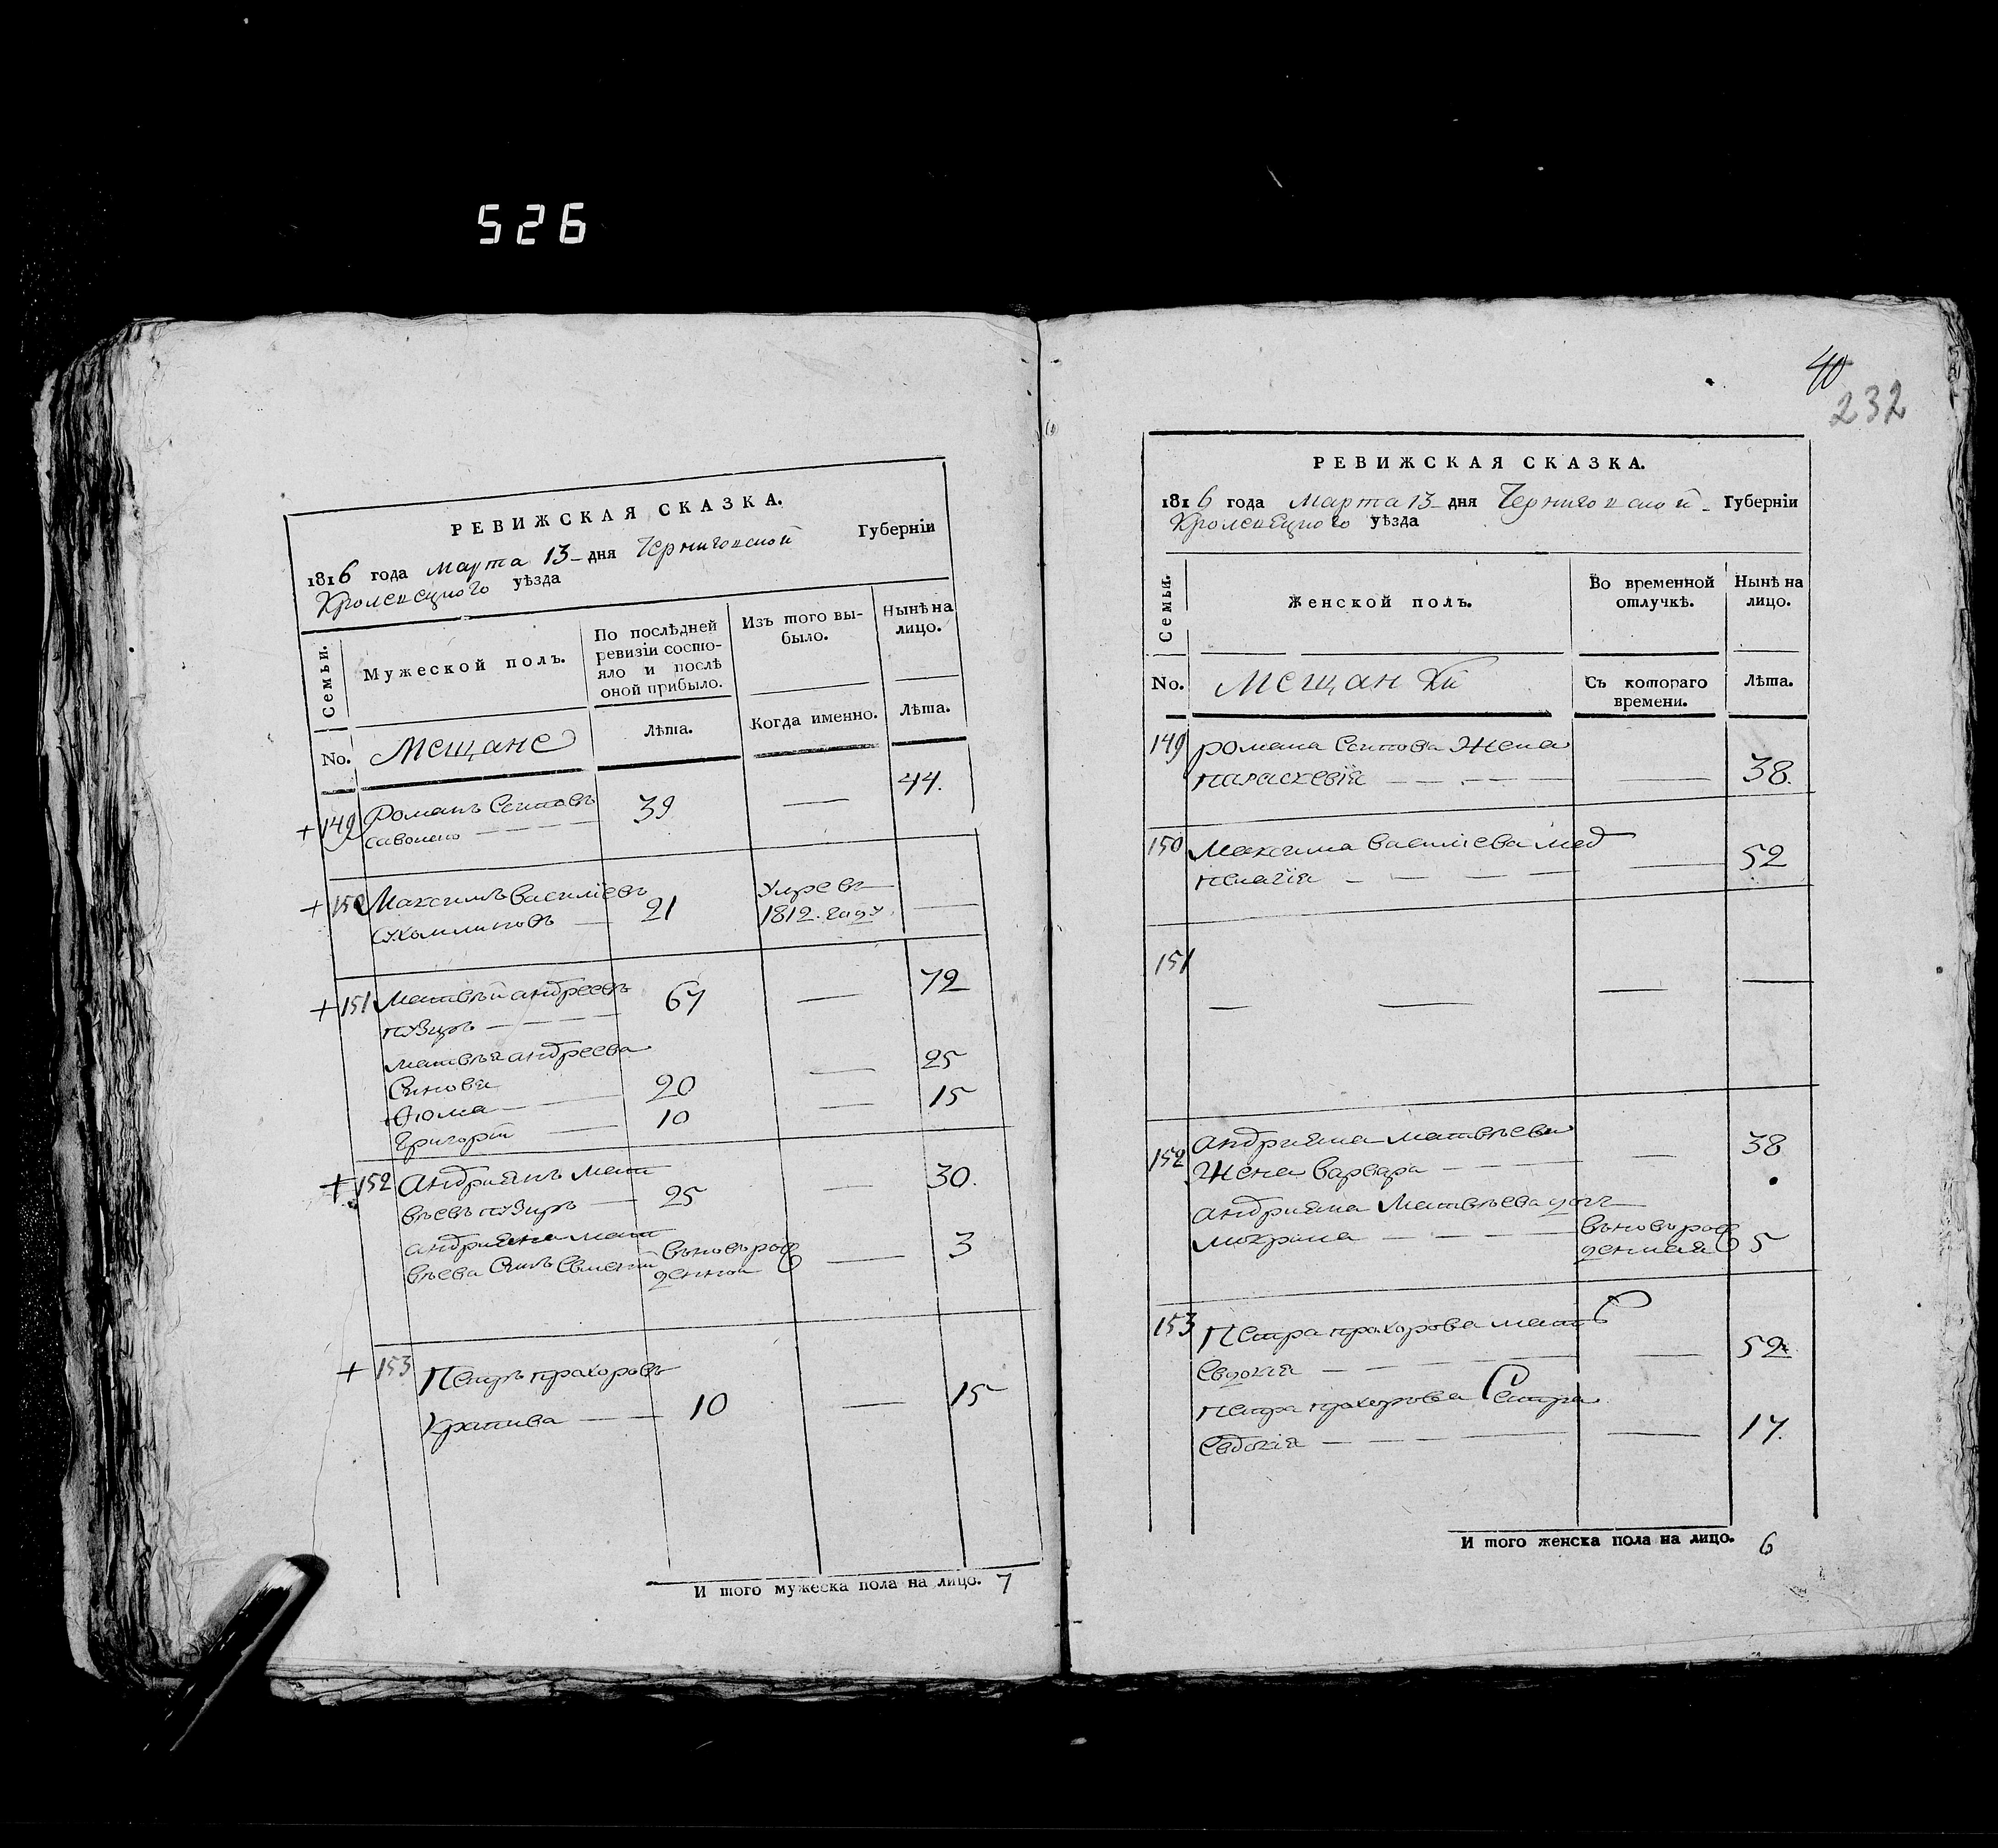 526
РЕВИЖСКАЯ СКАЗКА.
1816 года марта 13 дня Черниговской Губерніи
Кролевецкого уѣзда
Семьи.
Мужеской полъ.
По послѣдней ревизіи состояло и послѣ оной прибыло.
Изъ того выбыло.
Нынѣ на лицо.
No. Мещане
Лѣта.
Когда именно.
Лѣта.
+ 149 Романъ 39 — 44.
+ 150 Максимъ Василіевъ
21 Умре въ 1812. году —
+ 151 Матвѣй андреевъ
67 — 72
матвѣя андреева
Синовя 20 — 25
Ѳома
Григорій 10 — 15
+ 152 Андриянъ мат
вѣевъ пузиръ — 25 — 30.
андрияна мат
вѣева Синъ вѣновърож
денной — 3
+ 153 Петръ прохоровъ
Крапива — 10 — 15
И того мужеска пола на лицо. 7
40
232
РЕВИЖСКАЯ СКАЗКА.
1816 года Марта 13 дня Черниговской Губерніи
Кролевецкого уѣзда
Семьи.
Женской полъ.
Во временной отлучкѣ.
Нынѣ на лицо.
No. Мещанки
Съ котораго времени.
Лѣта.
149 романа Жена
параскевія — 38.
150 Максима василіева
пелагія — 52
151 — — — —
152 андрияна матвѣева
Жена варвара — 38
андрияна Матвѣева доч
мокрина — вѣновърож
денная 5
153 Петра прохорова мать
Евдокія — 52.
петра прохорова Сестра
Евдокія — 17.
И того женска пола на лицо. 6